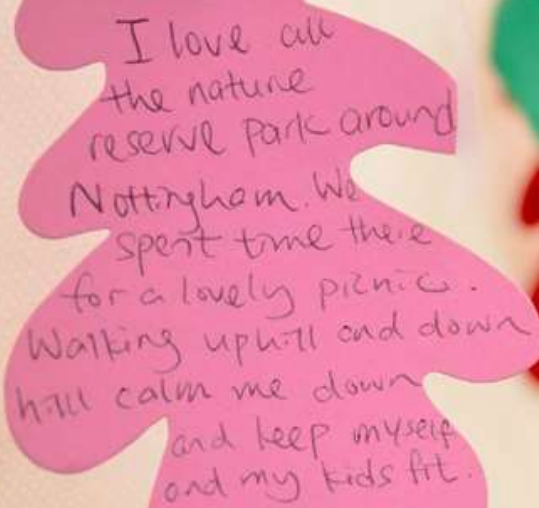 I love all
the nature
reserve park around
Nottingham. We
spent time there
for a lovely picnic.
Walking uphill and down
hill calm me down
and keep myself
and my kids fit.